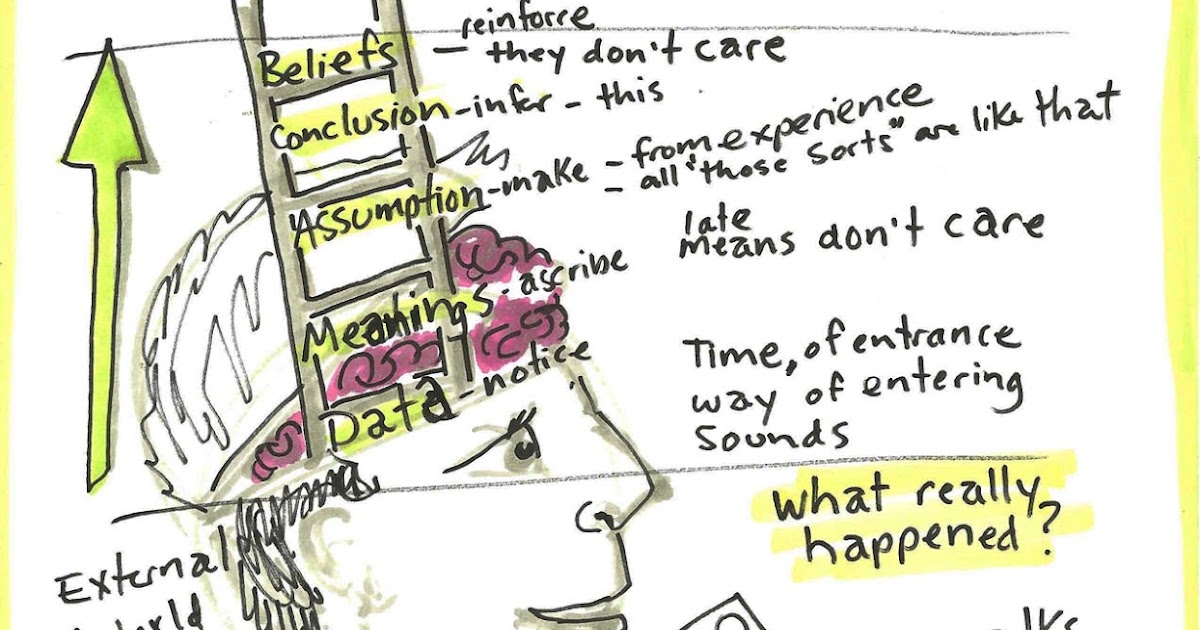 reinforce
Beliefs – they don't care
Conclusion-infer – this
Assumption-make – from experience
– all "those sorts" are like that
late
means don't care
Meanings-ascribe
Time, of entrance
way of entering
sounds
Data-notice
what really
happened?
External